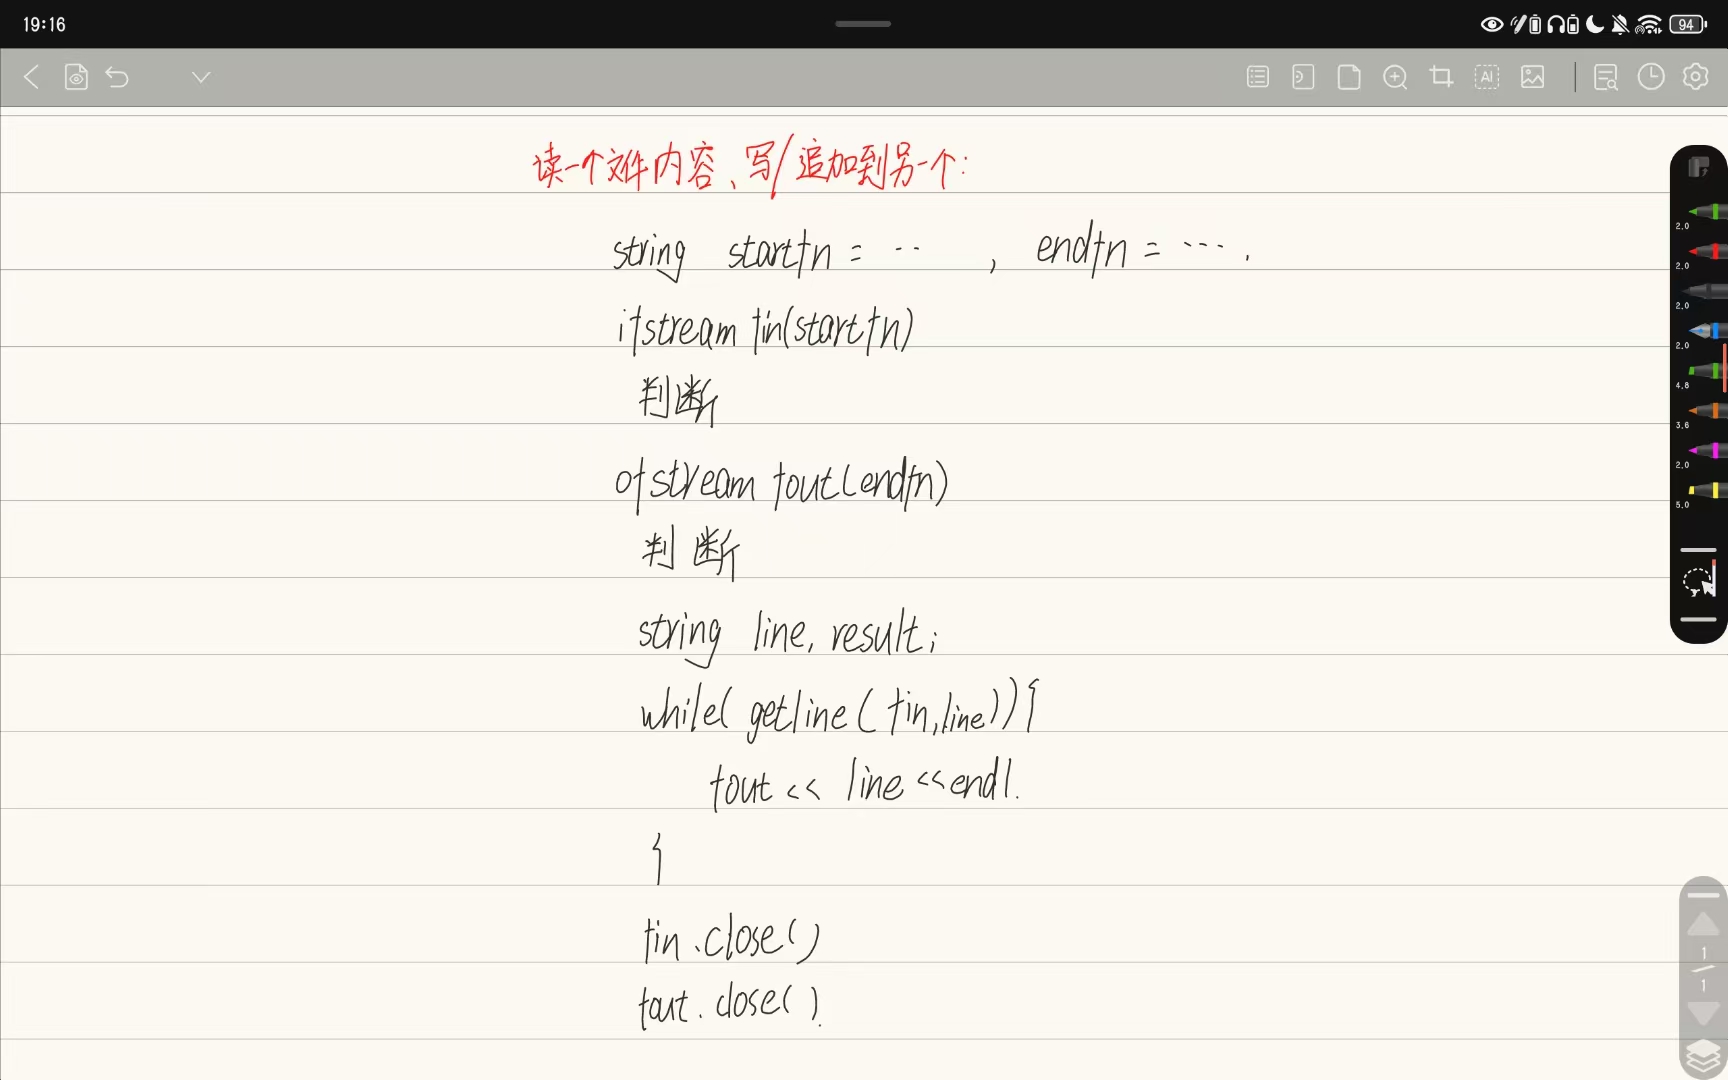 19:16
94
AI
读一个文件内容、写/追加到另一个:
string startfn = ·· , endfn = ··· .
ifstream fin(startfn)
判断
ofstream fout(endfn)
判断
string line, result;
while( getline( fin,line)){
fout << line <<endl.
}
fin.close()
fout.close().
2.0
2.0
2.0
2.0
4.8
3.6
2.0
5.0
1
1